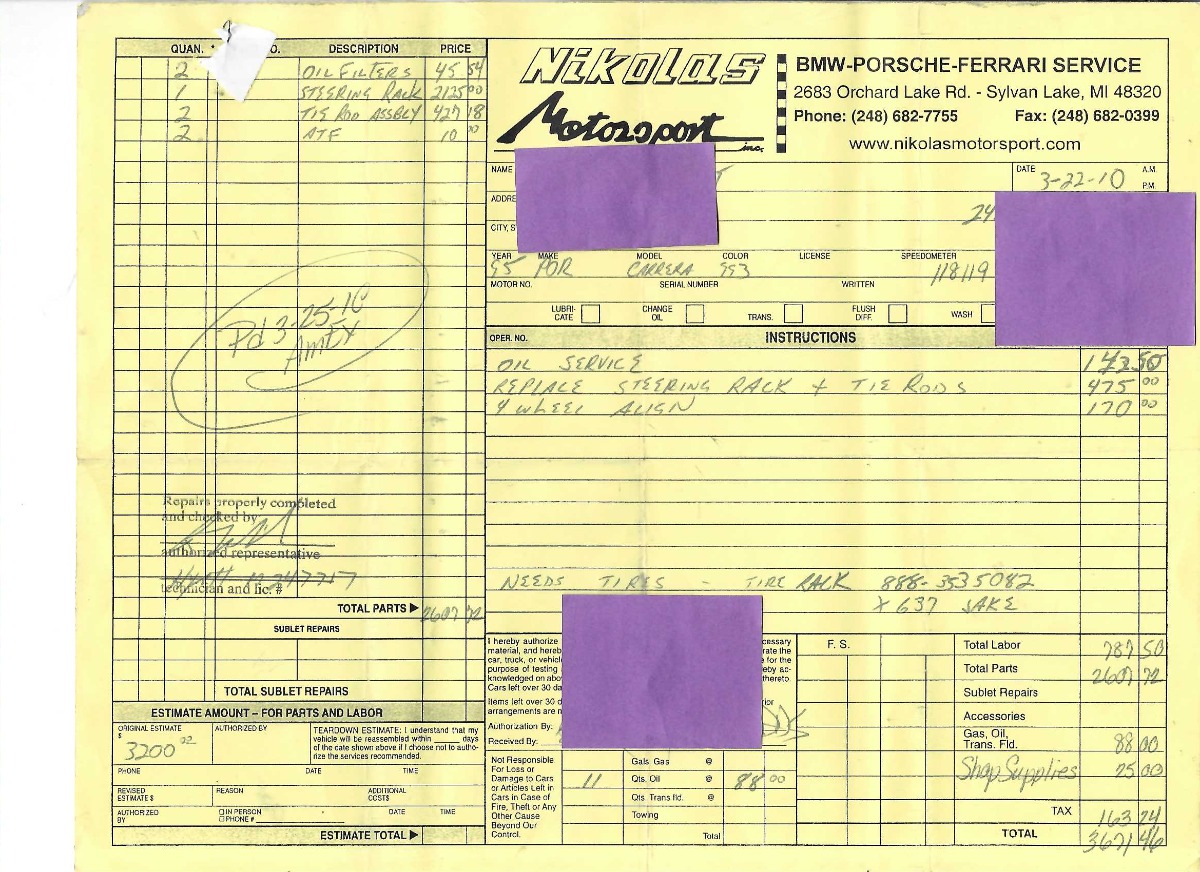 QUAN. * O. DESCRIPTION PRICE
2 OIL FILTERS 45 54
1 STEERING RACK 2125 00
2 TIE ROD ASSBLY 427 18
2 ATF 10 00
Pd 3-25-10
AmEx
Repairs properly completed
and checked by
authorized representative
technician and lic. #
TOTAL PARTS ▶ 2607 72
SUBLET REPAIRS
TOTAL SUBLET REPAIRS
ESTIMATE AMOUNT – FOR PARTS AND LABOR
ORIGINAL ESTIMATE
$ 3200
AUTHORIZED BY
TEARDOWN ESTIMATE: I understand that my
vehicle will be reassembled within ______ days
of the date shown above if I choose not to autho-
rize the services recommended.
PHONE DATE TIME
REVISED ESTIMATE $ REASON ADDITIONAL COST$
AUTHORIZED BY ☐ IN PERSON ☐ PHONE # DATE TIME
ESTIMATE TOTAL ▶
Nikolas
Motorsport
inc.
BMW-PORSCHE-FERRARI SERVICE
2683 Orchard Lake Rd. - Sylvan Lake, MI 48320
Phone: (248) 682-7755 Fax: (248) 682-0399
www.nikolasmotorsport.com
NAME DATE 3-22-10 A.M.
P.M.
ADDRE
24
CITY, S
YEAR MAKE MODEL COLOR LICENSE SPEEDOMETER
95 POR CARRERA 993 118119
MOTOR NO. SERIAL NUMBER WRITTEN
LUBRI-CATE CHANGE OIL TRANS. FLUSH DIFF. WASH
OPER. NO. INSTRUCTIONS
OIL SERVICE 50
REPLACE STEERING RACK + TIE RODS 475 00
4 WHEEL ALIGN 170 00
NEEDS TIRES - TIRE RACK 888-3535082
X 637 JAKE
I hereby authorize cessary
material, and hereb rate the
car, truck, or vehicl e for the
purpose of testing eby ac-
knowledged on abov thereto.
Cars left over 30 da
Items left over 30 d rior
arrangements are n
Authorization By:
Received By:
Not Responsible
For Loss or
Damage to Cars
or Articles Left in
Cars in Case of
Fire, Theft or Any
Other Cause
Beyond Our
Control.
Gals. Gas @
11 Qts. Oil @ 88 00
Qts. Trans fld. @
Towing
Total
F. S.
Total Labor 787 50
Total Parts 2607 72
Sublet Repairs
Accessories
Gas, Oil,
Trans. Fld. 88 00
Shop Supplies 25 00
TAX 163 24
TOTAL 3671 46